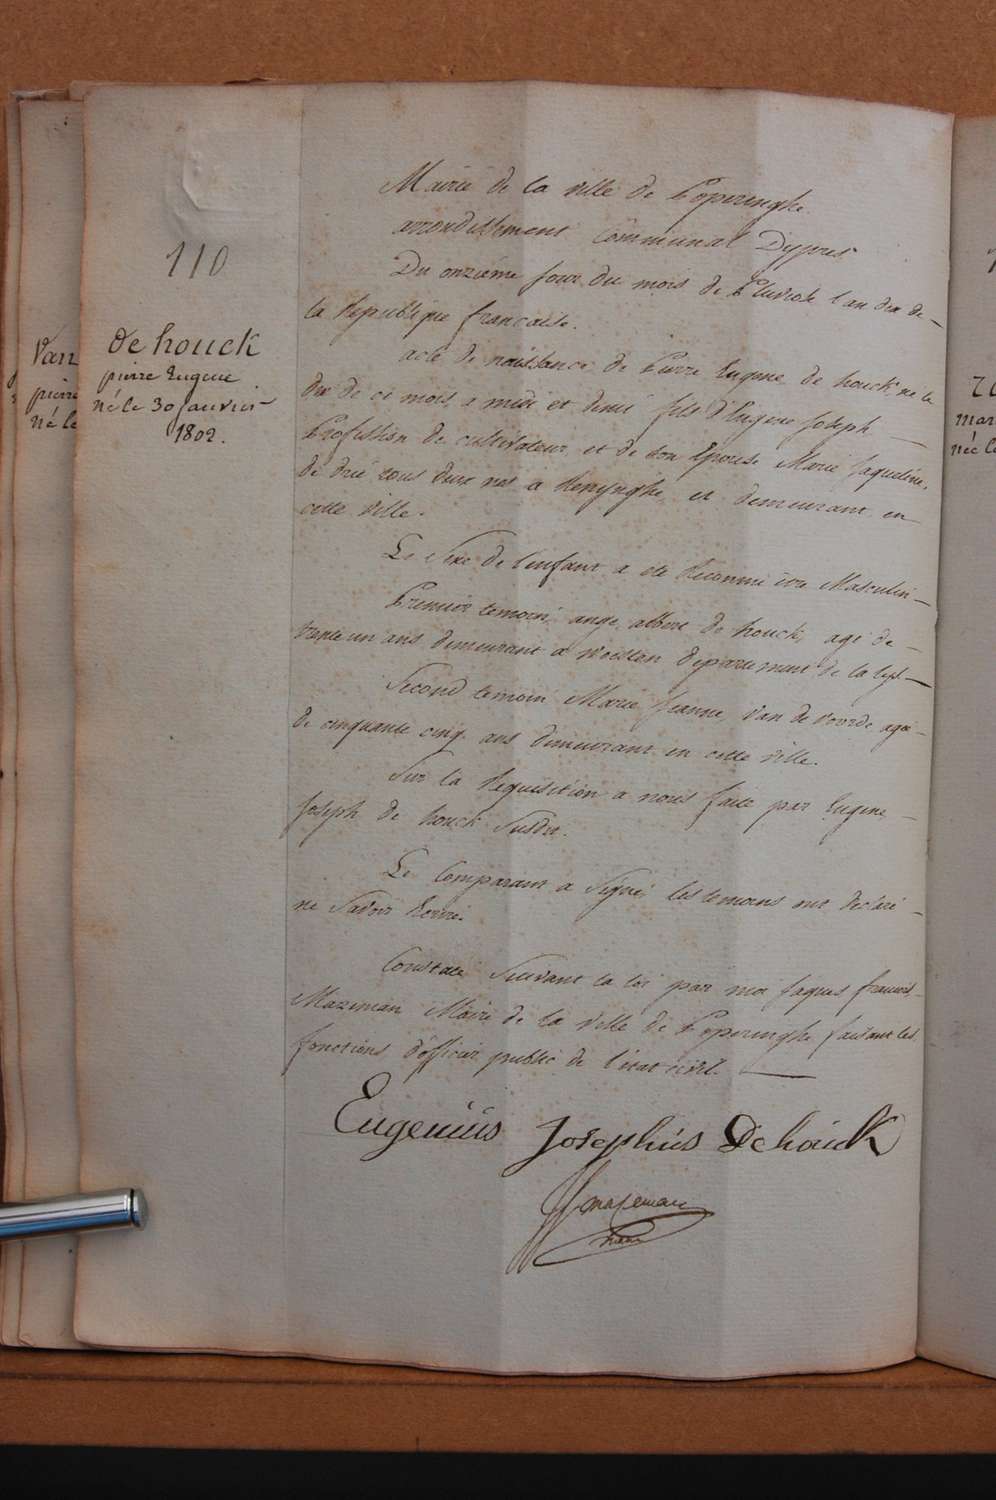 110
de houck
pierre Eugene
né le 30 Janvier
1802.
Mairie de la ville de Poperinghe
arrondissement Communal Dypres
Du onziéme jour du mois de Pluviose l'an dix de
la Republique francaise.
acte de naissance de Pierre Eugene de houck, né le
dix de ce mois a midi et demi fils d'Eugene Joseph
Profession de cultivateur et de son Epouse Marie Jaqueline
de drie tous deux nés a Renynghe et demeurant en
cette ville.
Le Sexe de l'enfant a eté Reconnu etre Masculin
Premier temoin, ange albert de houck, agé de
trente un ans demeurant a Woesten departement de la Lys
Second temoin Marie Jeanne Van de Voorde agée
de cinquante cinq ans demeurant en cette ville.
Sur la Requisition a nous faite par Eugene
Joseph de houck Susdit.
Le Comparant a Signé, les temoins ont declaré
ne Savoir Ecrire.
Constaté Suivant la loi par moi Jaques francois
Mazeman Maire de la ville de Poperinghe faisant les
fonctions d'officier public de l'état civil.
Eugeniús Josephús Dehoúck
Mazeman
maire
Van
pierre
né le
mar
née le